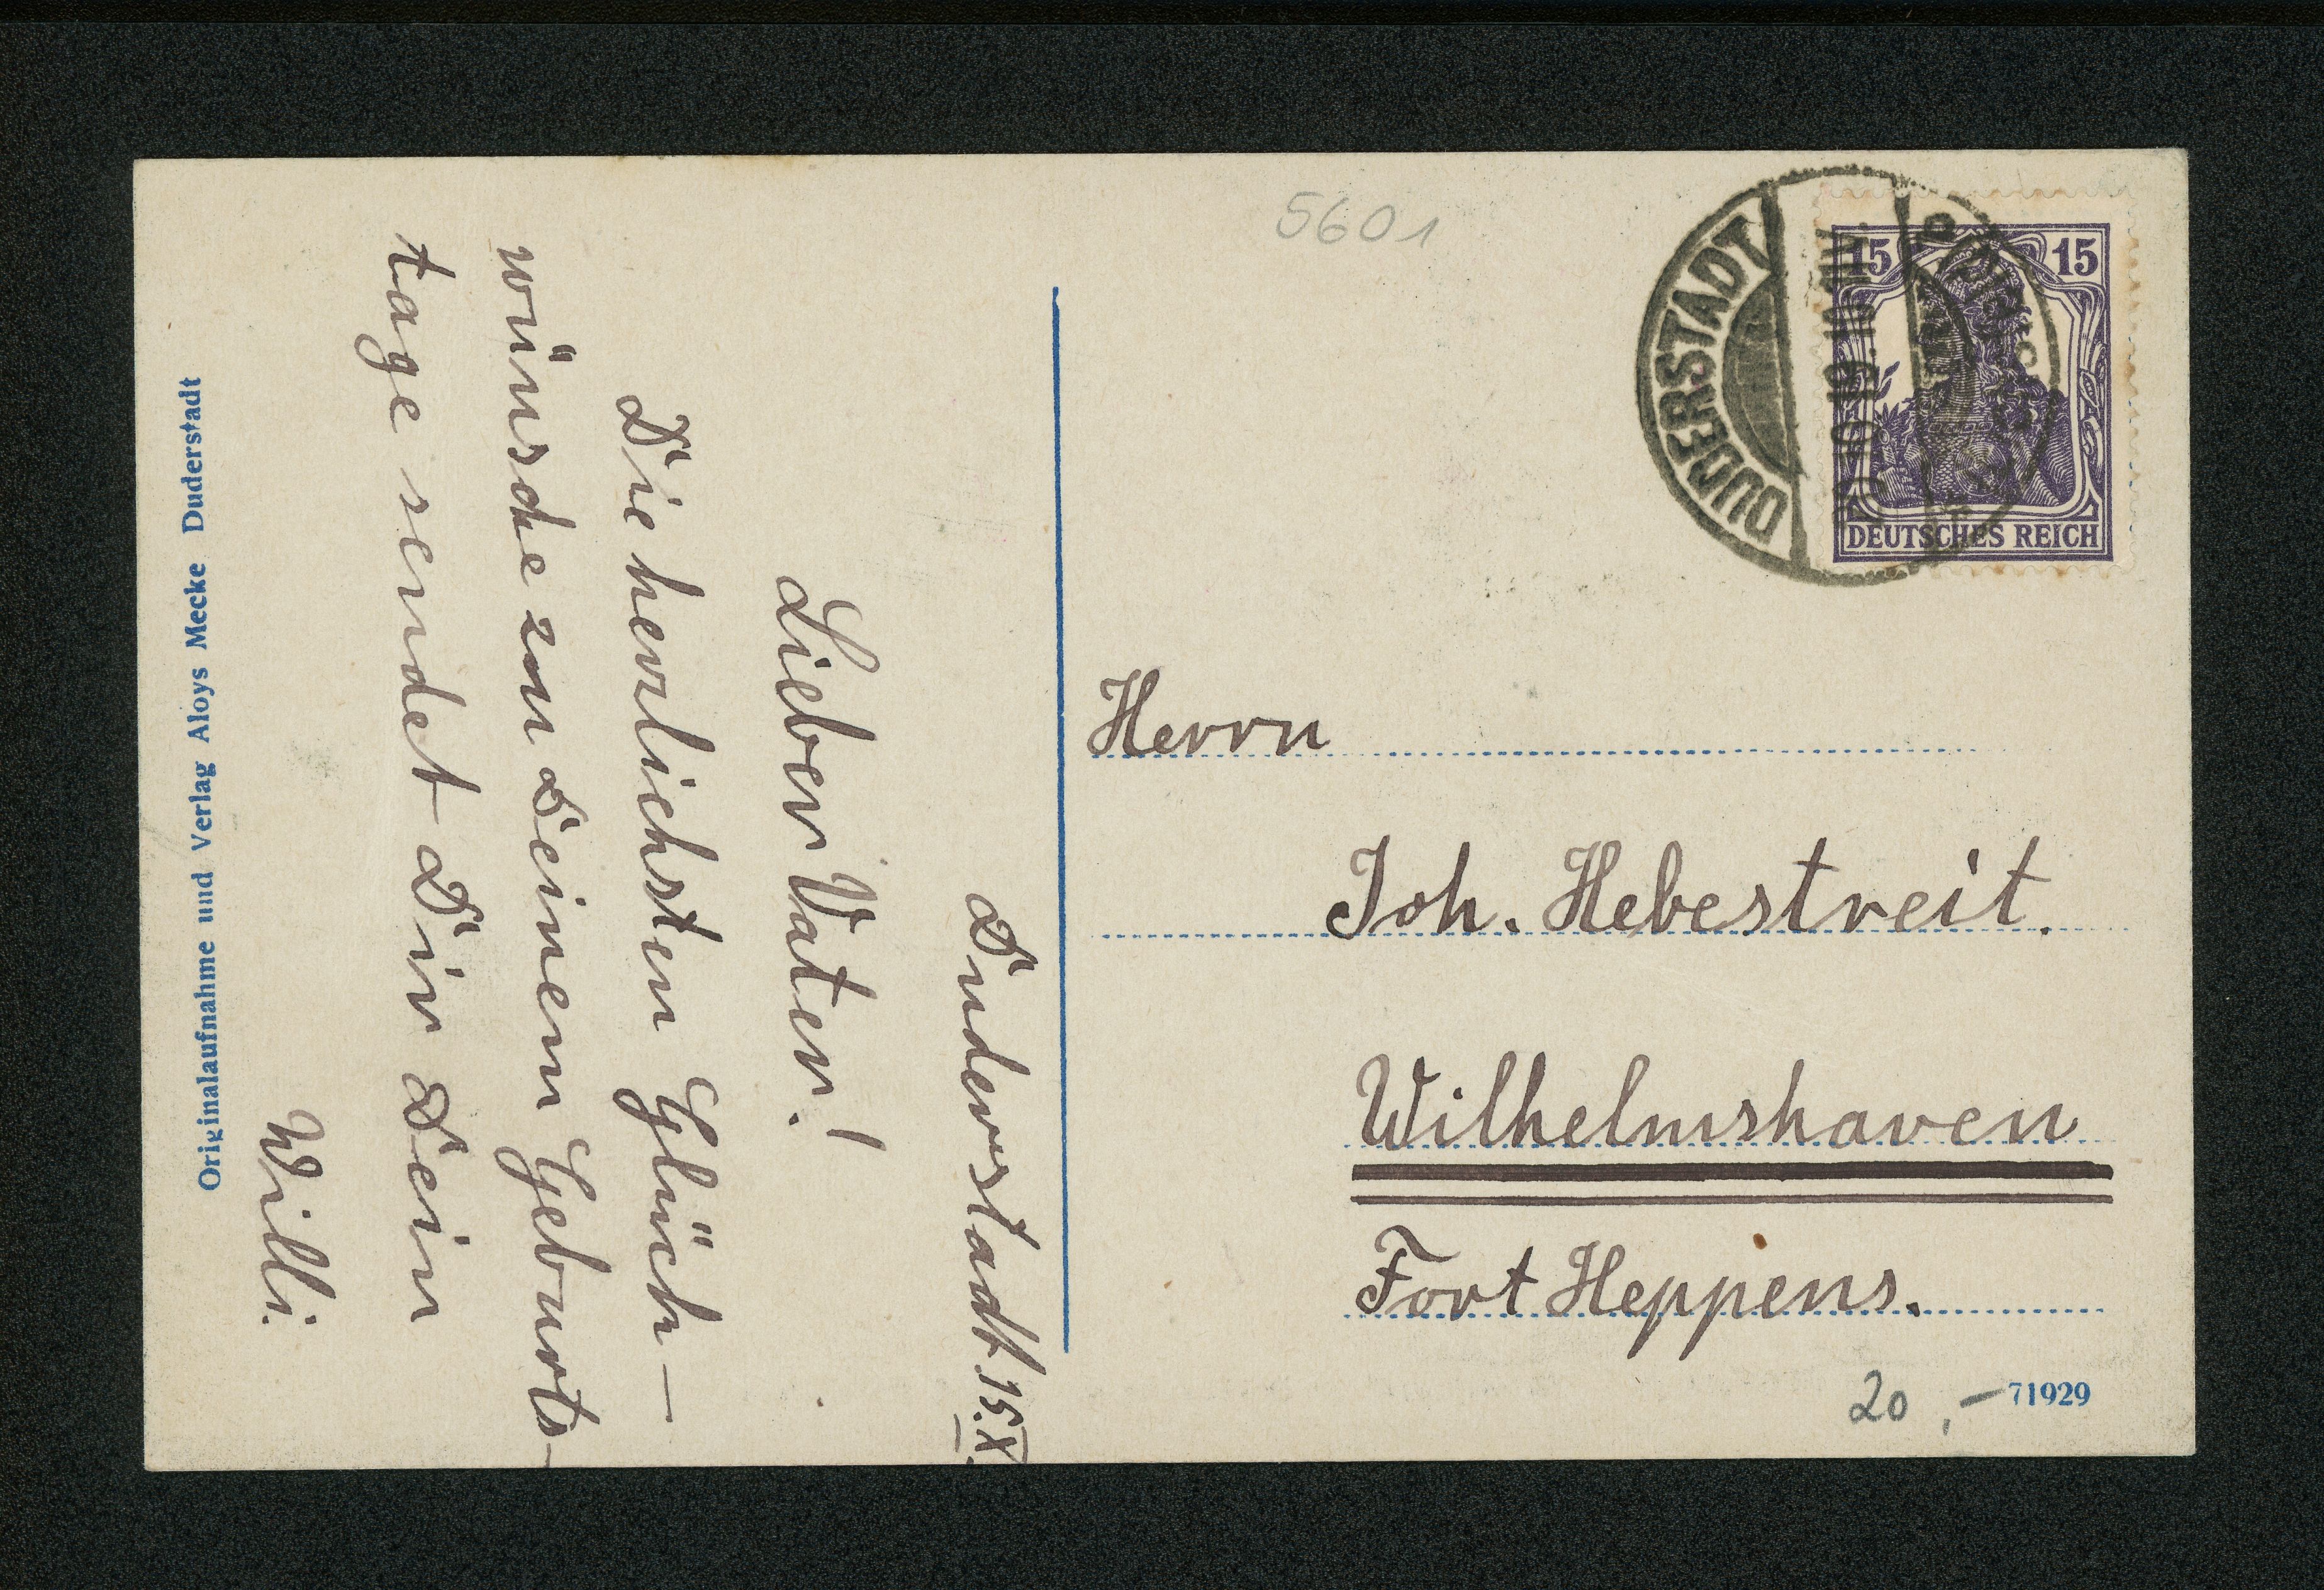 Duderstadt. 15. X.
Lieber Vater!
Die herzlichsten Glück-
wünsche zu Deinem Geburts-
tage sendet Dir Dein
Willi.
Originalaufnahme und Verlag Aloys Mecke Duderstadt
5601
DUDERSTADT
15 15
DEUTSCHES REICH
Herrn
Joh. Hebestreit.
Wilhelmshaven
Fort Heppens.
20,-
71929